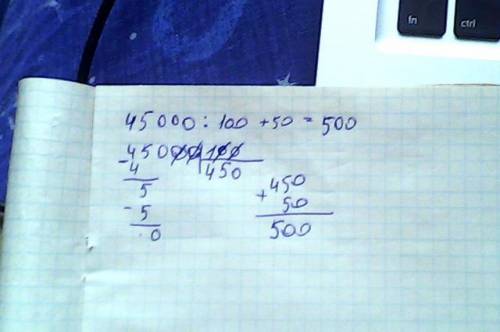 fn ctrl
45000 : 100 + 50 = 500
45000 100
- 4 450
5
- 5
0
450
+ 50
500